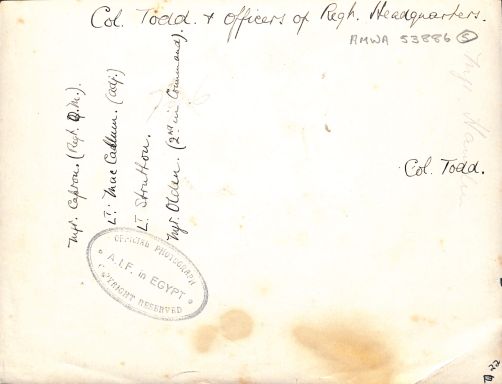 Col. Todd. & Officers of Regtl. Headquarters.
AMWA 53886 5
Mjr. Captron. (Regt. Q.M.).
Lt. MacCallum. (adj.)
Lt. Stratton.
Mjr. Olden. (2nd in Command).
Col. Todd.
OFFICIAL PHOTOGRAPH
A.I.F. in EGYPT
COPYRIGHT RESERVED